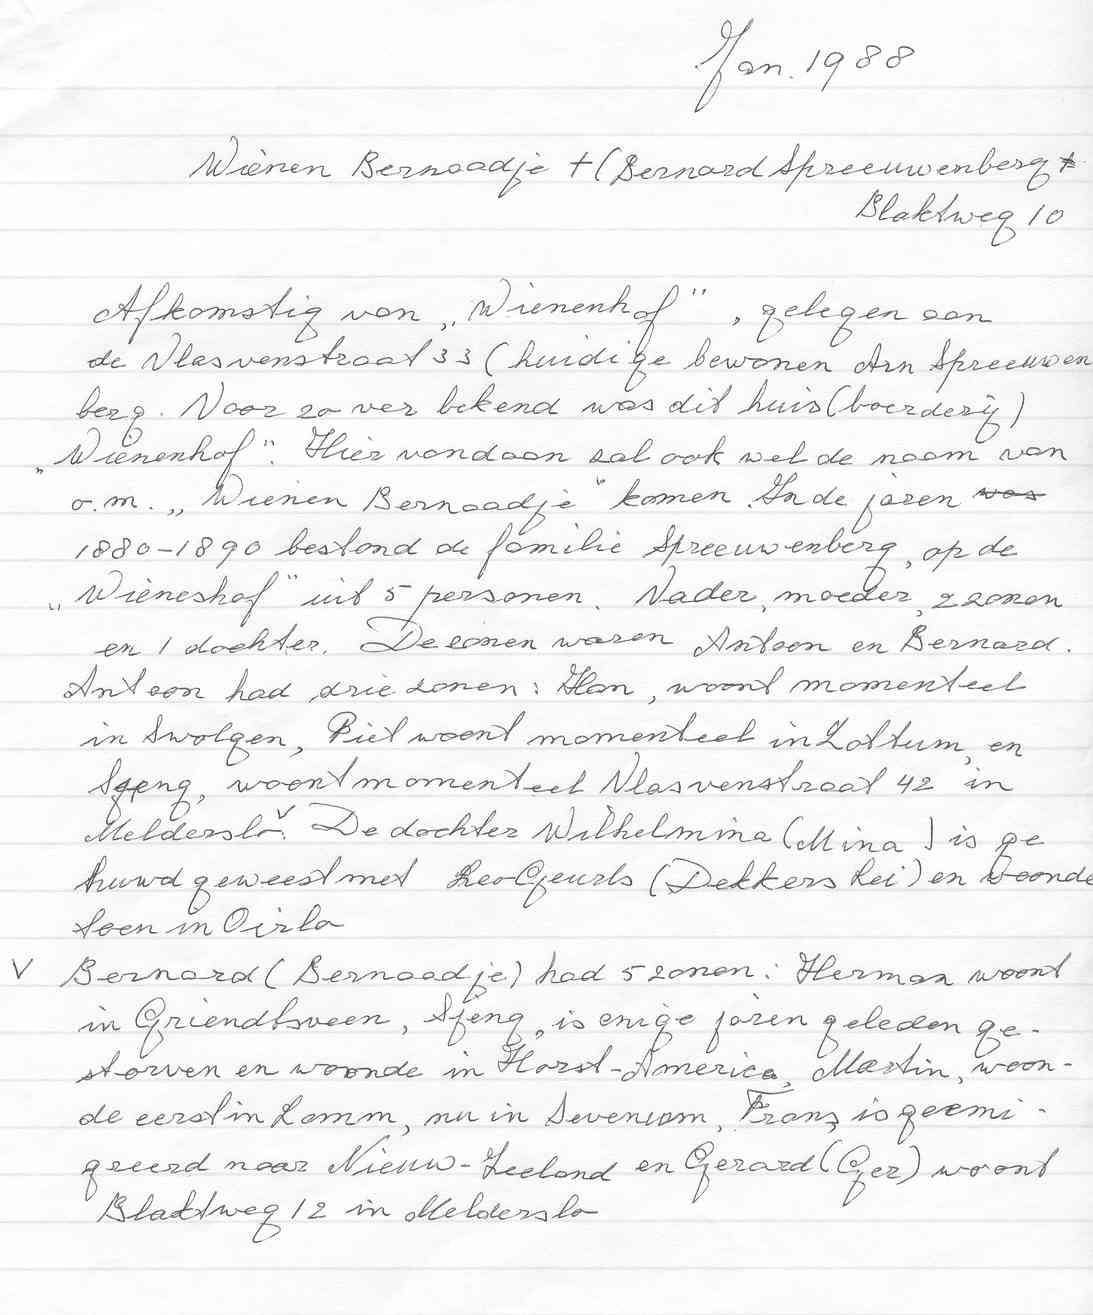 Jan. 1988
Wiènen Bernaadje + (Bernard Spreeuwenberg +
Blaktweg 10
Afkomstig van „Wienenhof", gelegen aan
de Vlasvenstraat 33 (huidige bewonen Arn Spreeuwen
berg. Voor zo ver bekend was dit huis (boerderij)
„Wienenhof". Hier vandaan zal ook wel de naam van
o.m. „Wienen Bernaadje" komen. In de jaren was
1880-1890 bestond de familie Spreeuwenberg, op de
„Wieneshof" uit 5 personen. Vader, moeder, 2 zonen
en 1 dochter. De zonen waren Antoon en Bernard.
Antoon had drie zonen: Han, woont momenteel
in Swolgen, Piet woont momenteel in Lottum, en
Sjeng, woont momenteel Vlasvenstraat 42 in
Melderslo. V De dochter Wilhelmina (Mina) is ge
huwd geweest met Leo Geurts (Dekkers Lei) en woonde
toen in Oirlo
V Bernard (Bernaadje) had 5 zonen: Herman woont
in Griendtsveen, Sjeng, is enige jaren geleden ge-
storven en woonde in Horst-America, Martin, woon-
de eerst in Lomm, nu in Sevenum, Frans is geemi-
greerd naar Nieuw-Zeeland en Gerard (Ger) woont
Blaktweg 12 in Melderslo